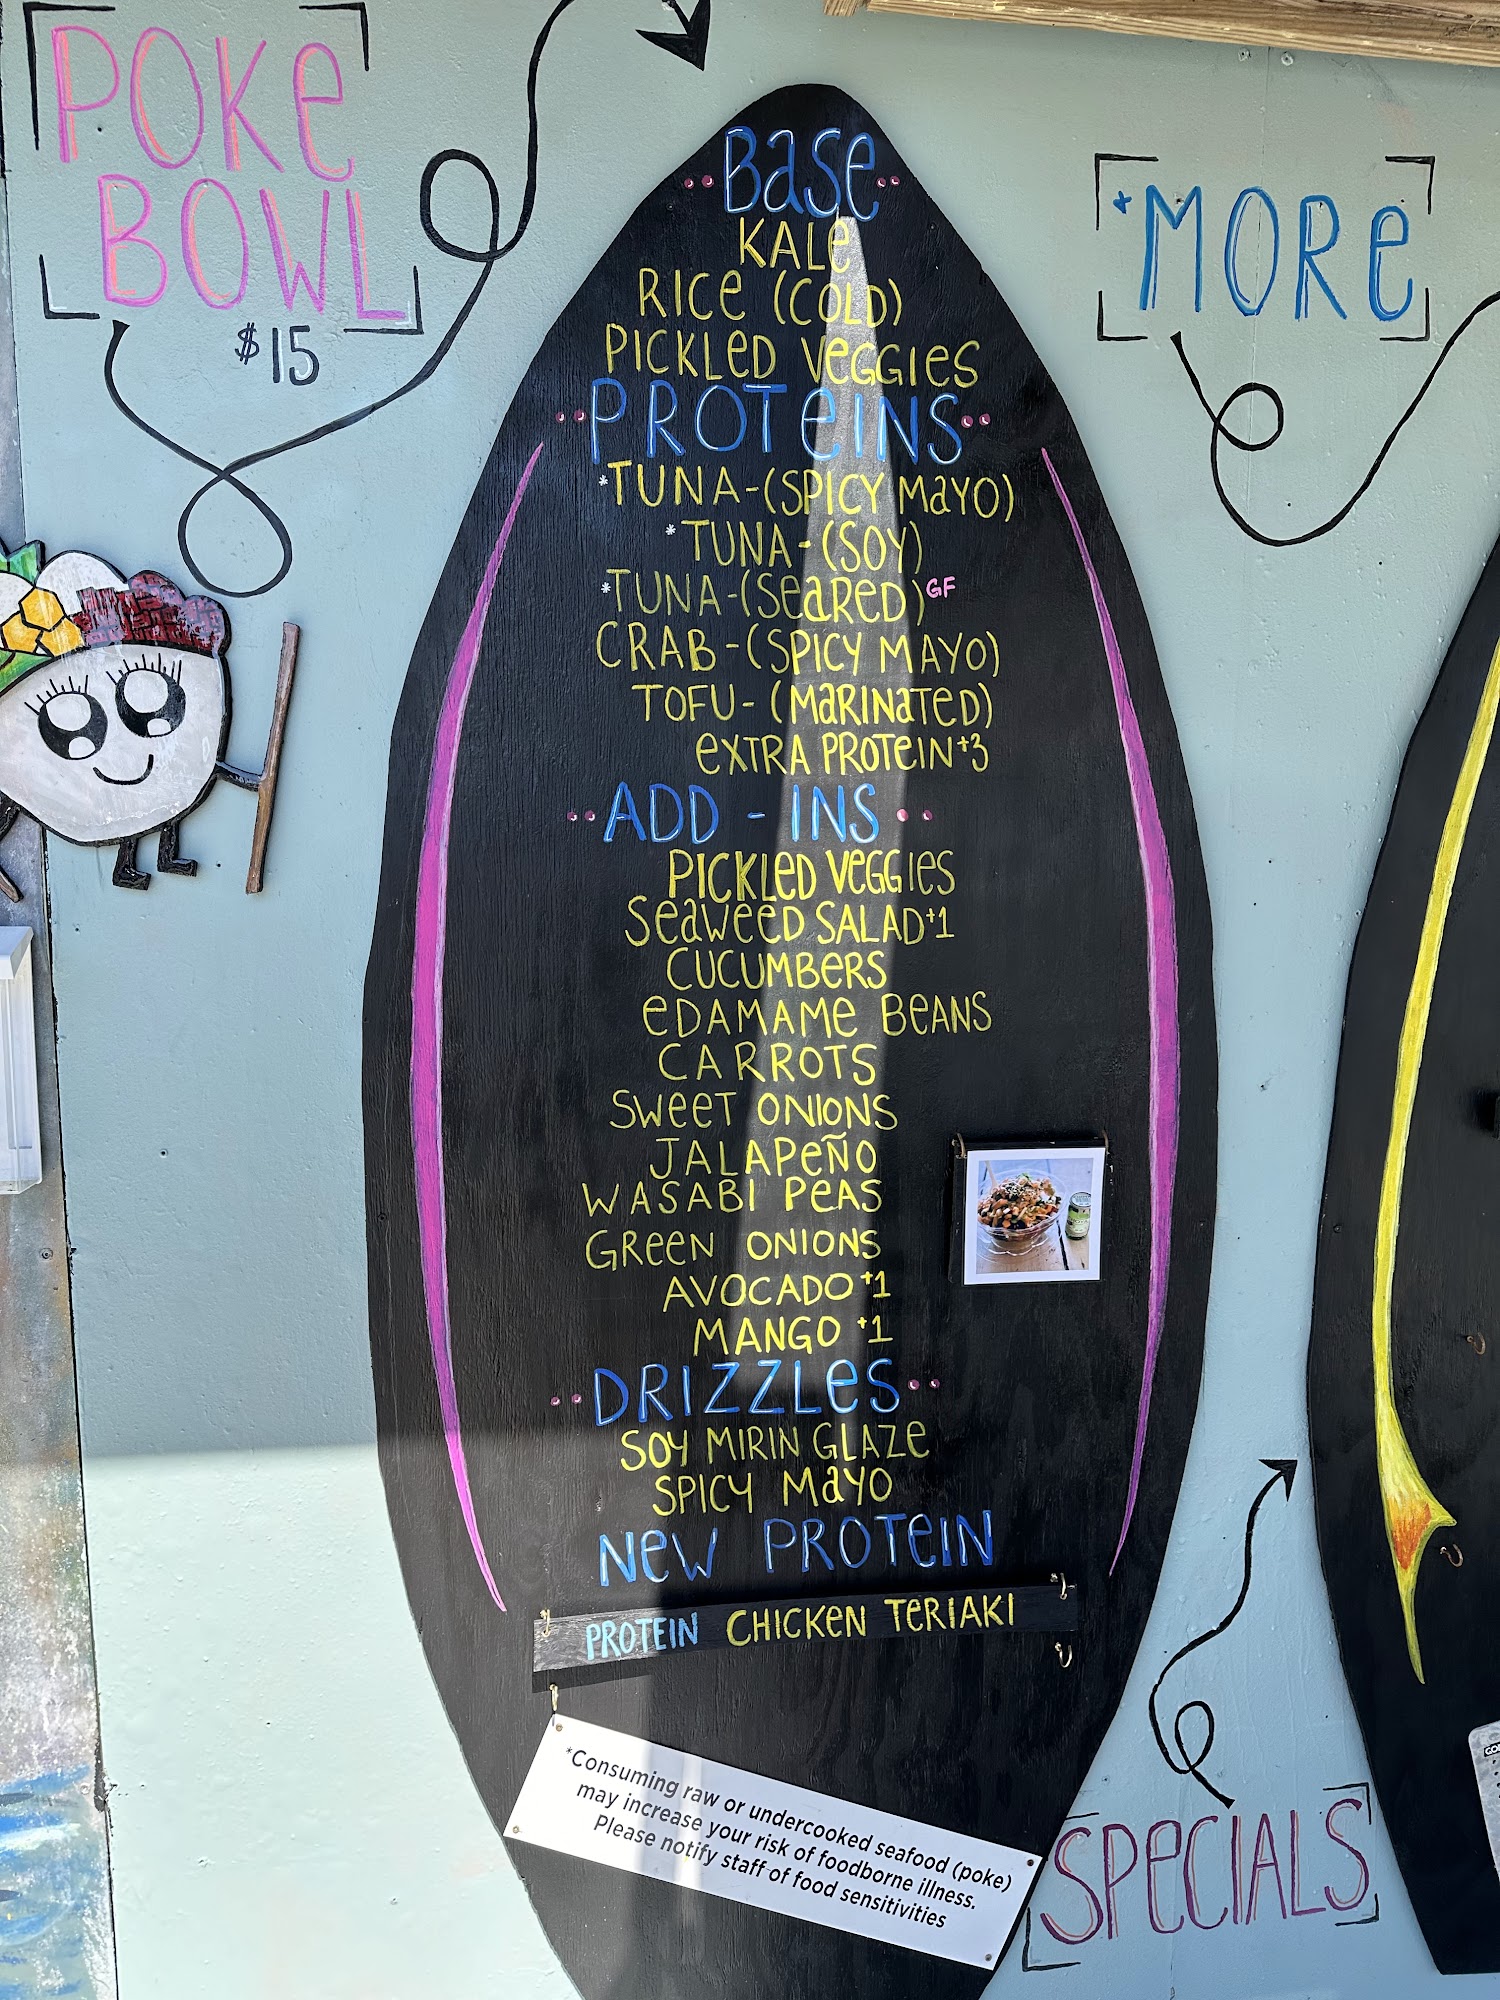 POKe
BOWL
$15
Base
KALe
RICe (COLD)
PICKLeD VeGGIeS
PROTeINS
*TUNA-(SPICY MaYO)
*TUNA-(SOY)
*TUNA-(SeaReD) GF
CRAB-(SPICY MAYO)
TOFU-(MaRINaTeD)
eXTRA PROTeIN+3
ADD-INS
PICKLeD VeGGIeS
SeaWeeD SALAD+1
CUCUMBeRS
eDAMAMe BeANS
CARROTS
SWeeT ONIONS
JALAPeÑO
WASABI PeAS
GReeN ONIONS
AVOCADO+1
MANGO+1
DRIZZLeS
SOY MIRIN GLAZe
SPICY MaYO
NeW PROTeIN
PROTEIN CHICKEN TeRIAKI
*Consuming raw or undercooked seafood (poke)
may increase your risk of foodborne illness.
Please notify staff of food sensitivities
+MORe
SPeCIALS